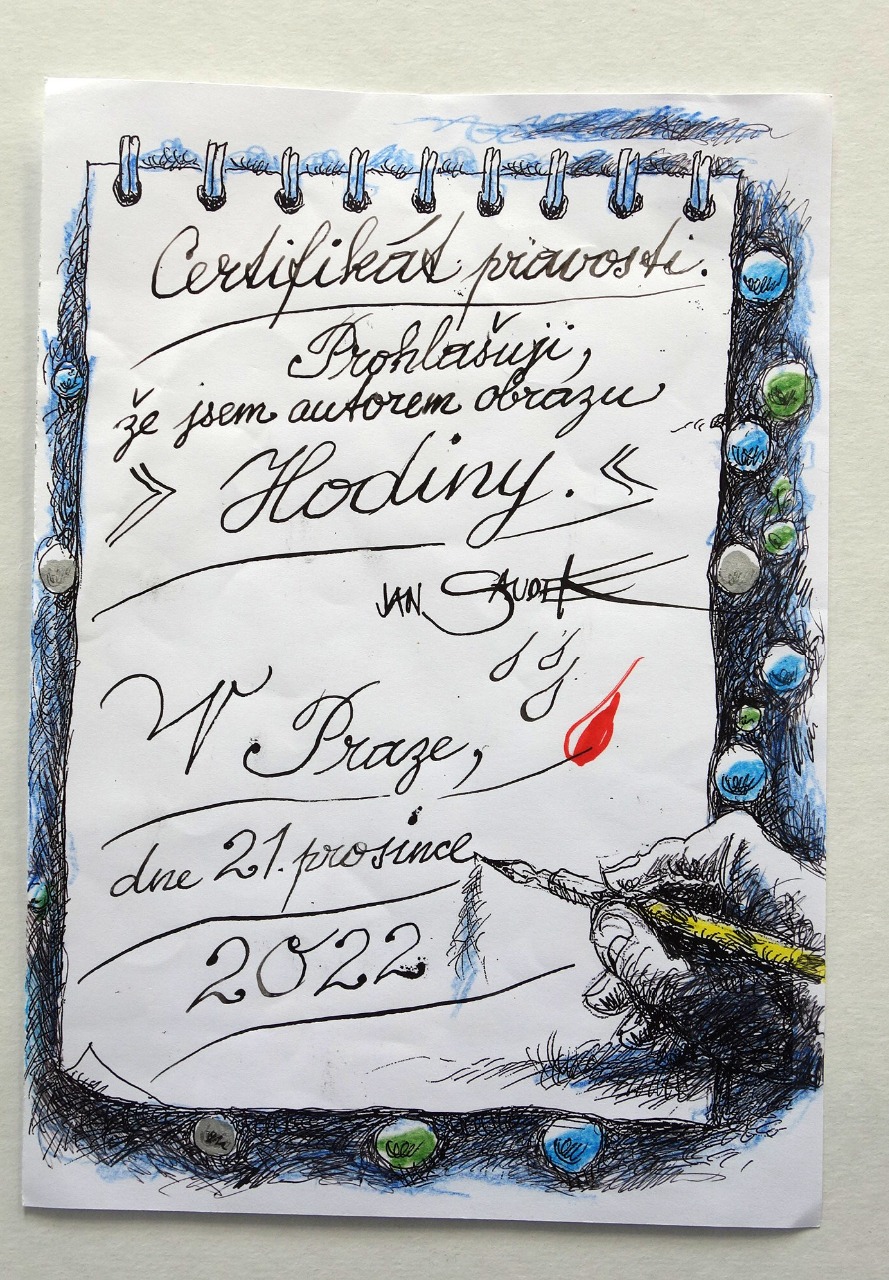 Certifikát pravosti.
Prohlašuji,
že jsem autorem obrazu
» Hodiny. «
JAN SAUDEK
V Praze,
dne 21. prosince
2022